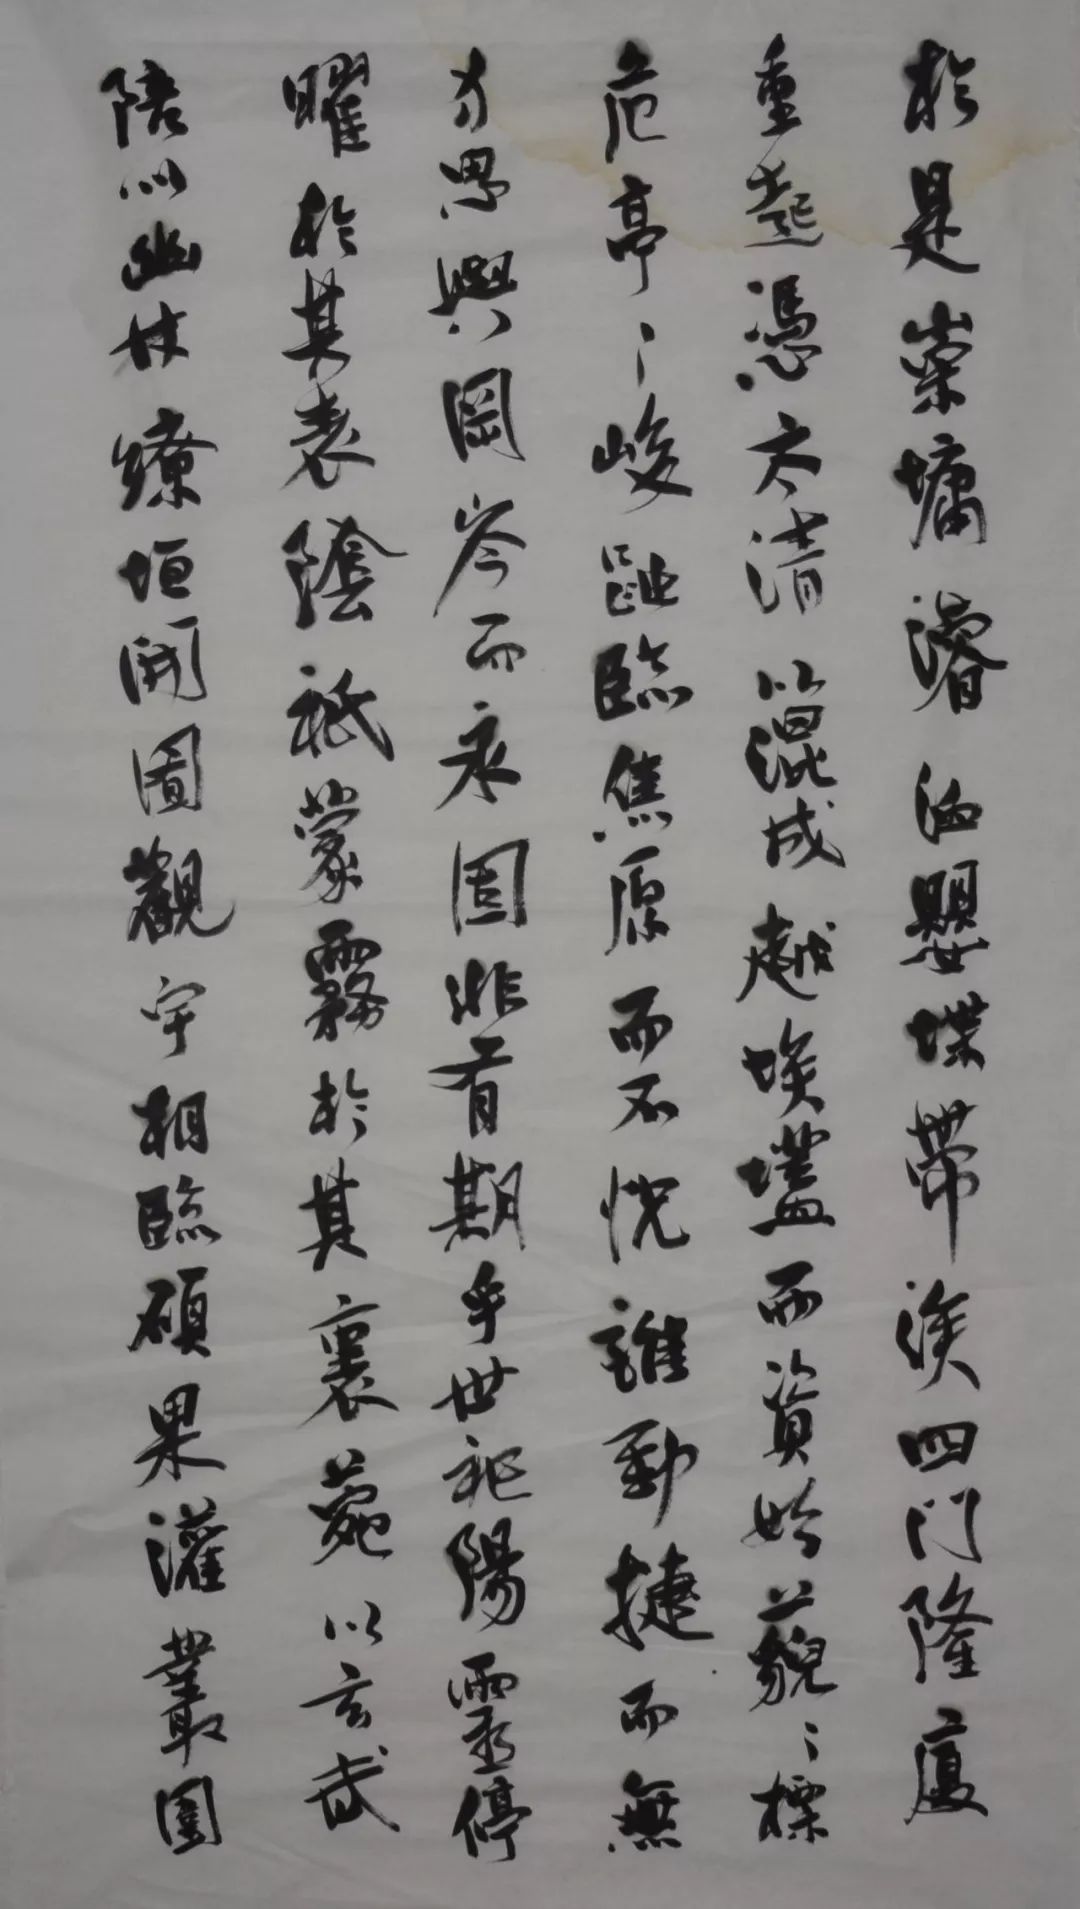 於是崇墉濬洫嬰堞帶涘四門隆廈
重起憑太清以混成越埃壒而資始藐〻標
危亭〻峻趾臨焦原而不怳誰勁捷而無
思與岡岑而永固非有期乎世祀陽靈停
曜於其表陰祇蒙霧於其裏菀以玄武
陪以幽林繚垣開囿觀宇相臨碩果灌叢圍